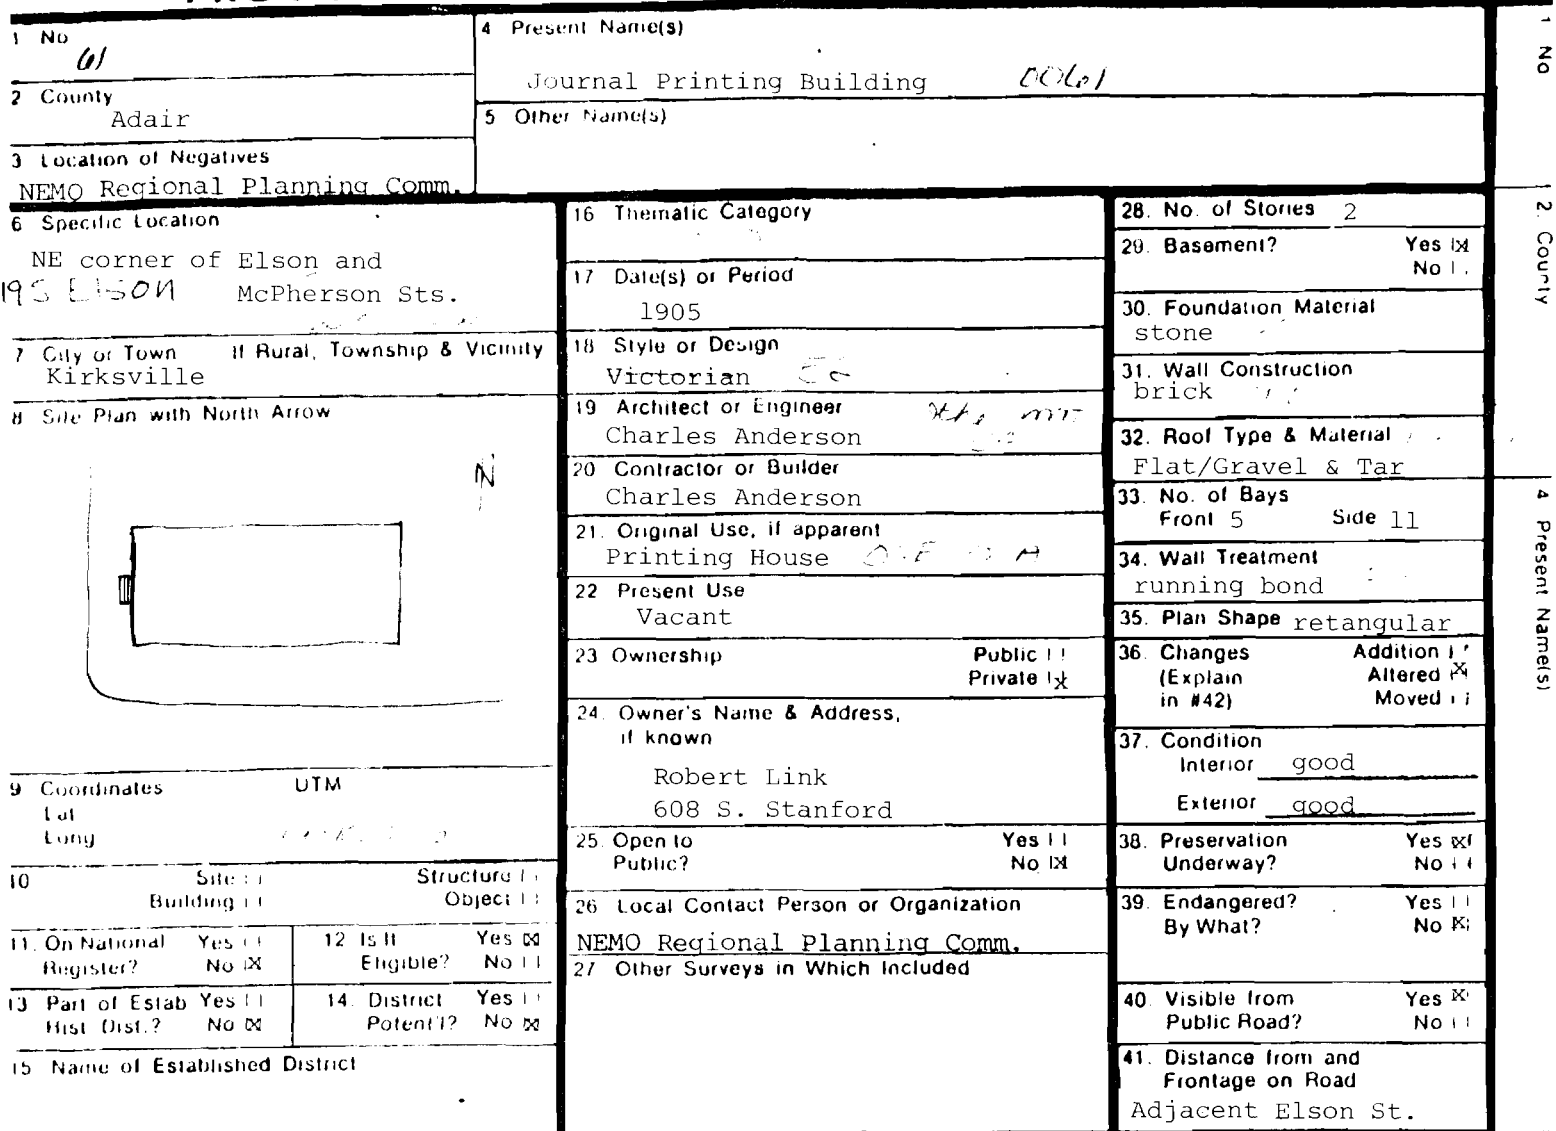 1 No
61
2 County
Adair
3 Location of Negatives
NEMO Regional Planning Comm.
4 Present Name(s)
Journal Printing Building 0061
5 Other Name(s)
6 Specific Location
NE corner of Elson and
McPherson Sts.
ELSON
7 City or Town If Rural, Township & Vicinity
Kirksville
8 Site Plan with North Arrow
N
9 Coordinates UTM
Lat
Long
10 Site Structure
Building Object
11. On National Yes
Register? No X
12 Is It Yes X
Eligible? No
13 Part of Estab Yes
Hist. Dist.? No X
14. District Yes
Potent'l? No X
15 Name of Established District
16 Thematic Category
17 Date(s) or Period
1905
18 Style or Design
Victorian
19 Architect or Engineer
Charles Anderson
20 Contractor or Builder
Charles Anderson
21. Original Use, if apparent
Printing House
22 Present Use
Vacant
23 Ownership Public
Private X
24. Owner's Name & Address,
if known
Robert Link
608 S. Stanford
25. Open to Yes
Public? No X
26 Local Contact Person or Organization
NEMO Regional Planning Comm.
27 Other Surveys in Which Included
28. No. of Stories 2
29. Basement? Yes X
No
30. Foundation Material
stone
31. Wall Construction
brick
32. Roof Type & Material
Flat/Gravel & Tar
33. No. of Bays
Front 5 Side 11
34. Wall Treatment
running bond
35. Plan Shape retangular
36. Changes Addition
(Explain Altered X
in #42) Moved
37. Condition
Interior good
Exterior good
38. Preservation Yes X
Underway? No
39. Endangered? Yes
By What? No X
40. Visible from Yes X
Public Road? No
41. Distance from and
Frontage on Road
Adjacent Elson St.
1 No
2. County
4 Present Name(s)